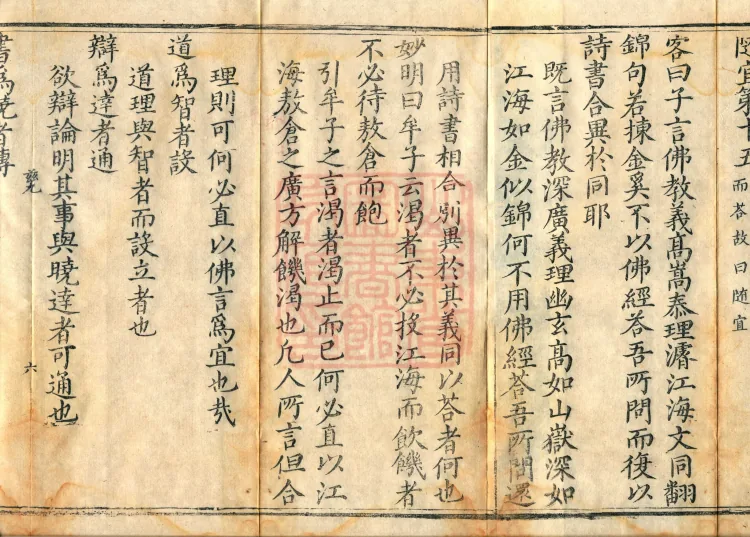 隨宜第十五 而荅故曰随宜
客曰子言佛教義髙嵩泰理濬江海文同翻
錦句若揀金奚不以佛經荅吾所問而復以
詩書合異於同耶
既言佛教深廣義理幽玄髙如山嶽深如
江海如金似錦何不用佛經荅吾所問還
用詩書相合别異於其義同以荅者何也
妙明曰牟子云渴者不必投江海而飲饑者
不必待敖倉而飽
引牟子之言渴者渴止而已何必直以江
海敖倉之廣方解饑渴也凢人所言但合
理則可何必直以佛言爲宜也㢤
道爲智者設
道理與智者而設立者也
辯爲達者通
欲辯論明其事與曉達者可通也
六
書爲曉者傳